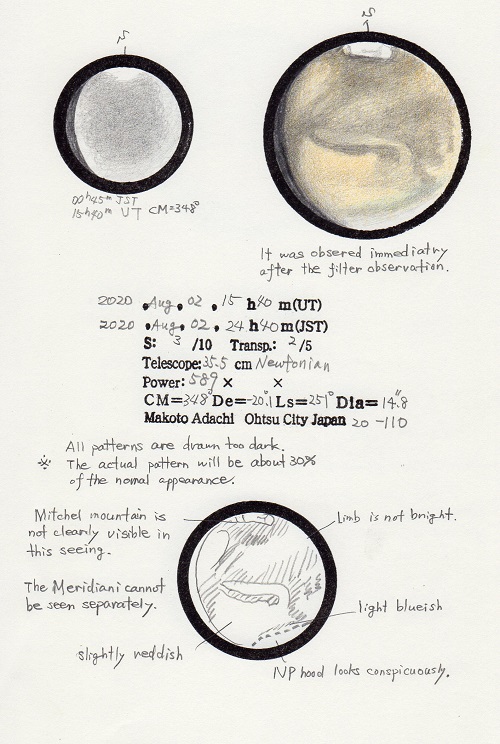 S
S
00h45m JST
15h40m UT CM=348°
It was obsered immediatry
after the filter observation.
2020 . Aug. 02 . 15 h 40 m(UT)
2020 . Aug. 02 . 24 h 40 m(JST)
S: 3 /10 Transp.: 2/5
Telescope: 35.5 cm Newtonian
Power: 589 × ×
CM=348° De=-20.°1 Ls=251° Dia=14.″8
Makoto Adachi Ohtsu City Japan 20-110
All patterns are drawn too dark.
※ The actual pattern will be about 30%
of the nomal appearance.
Mitchel mountain is
not clearly visible in
this seeing.
Limb is not bright.
The Meridiani cannot
be seen separately.
light blueish
slightly reddish
NP hood looks conspicuously.